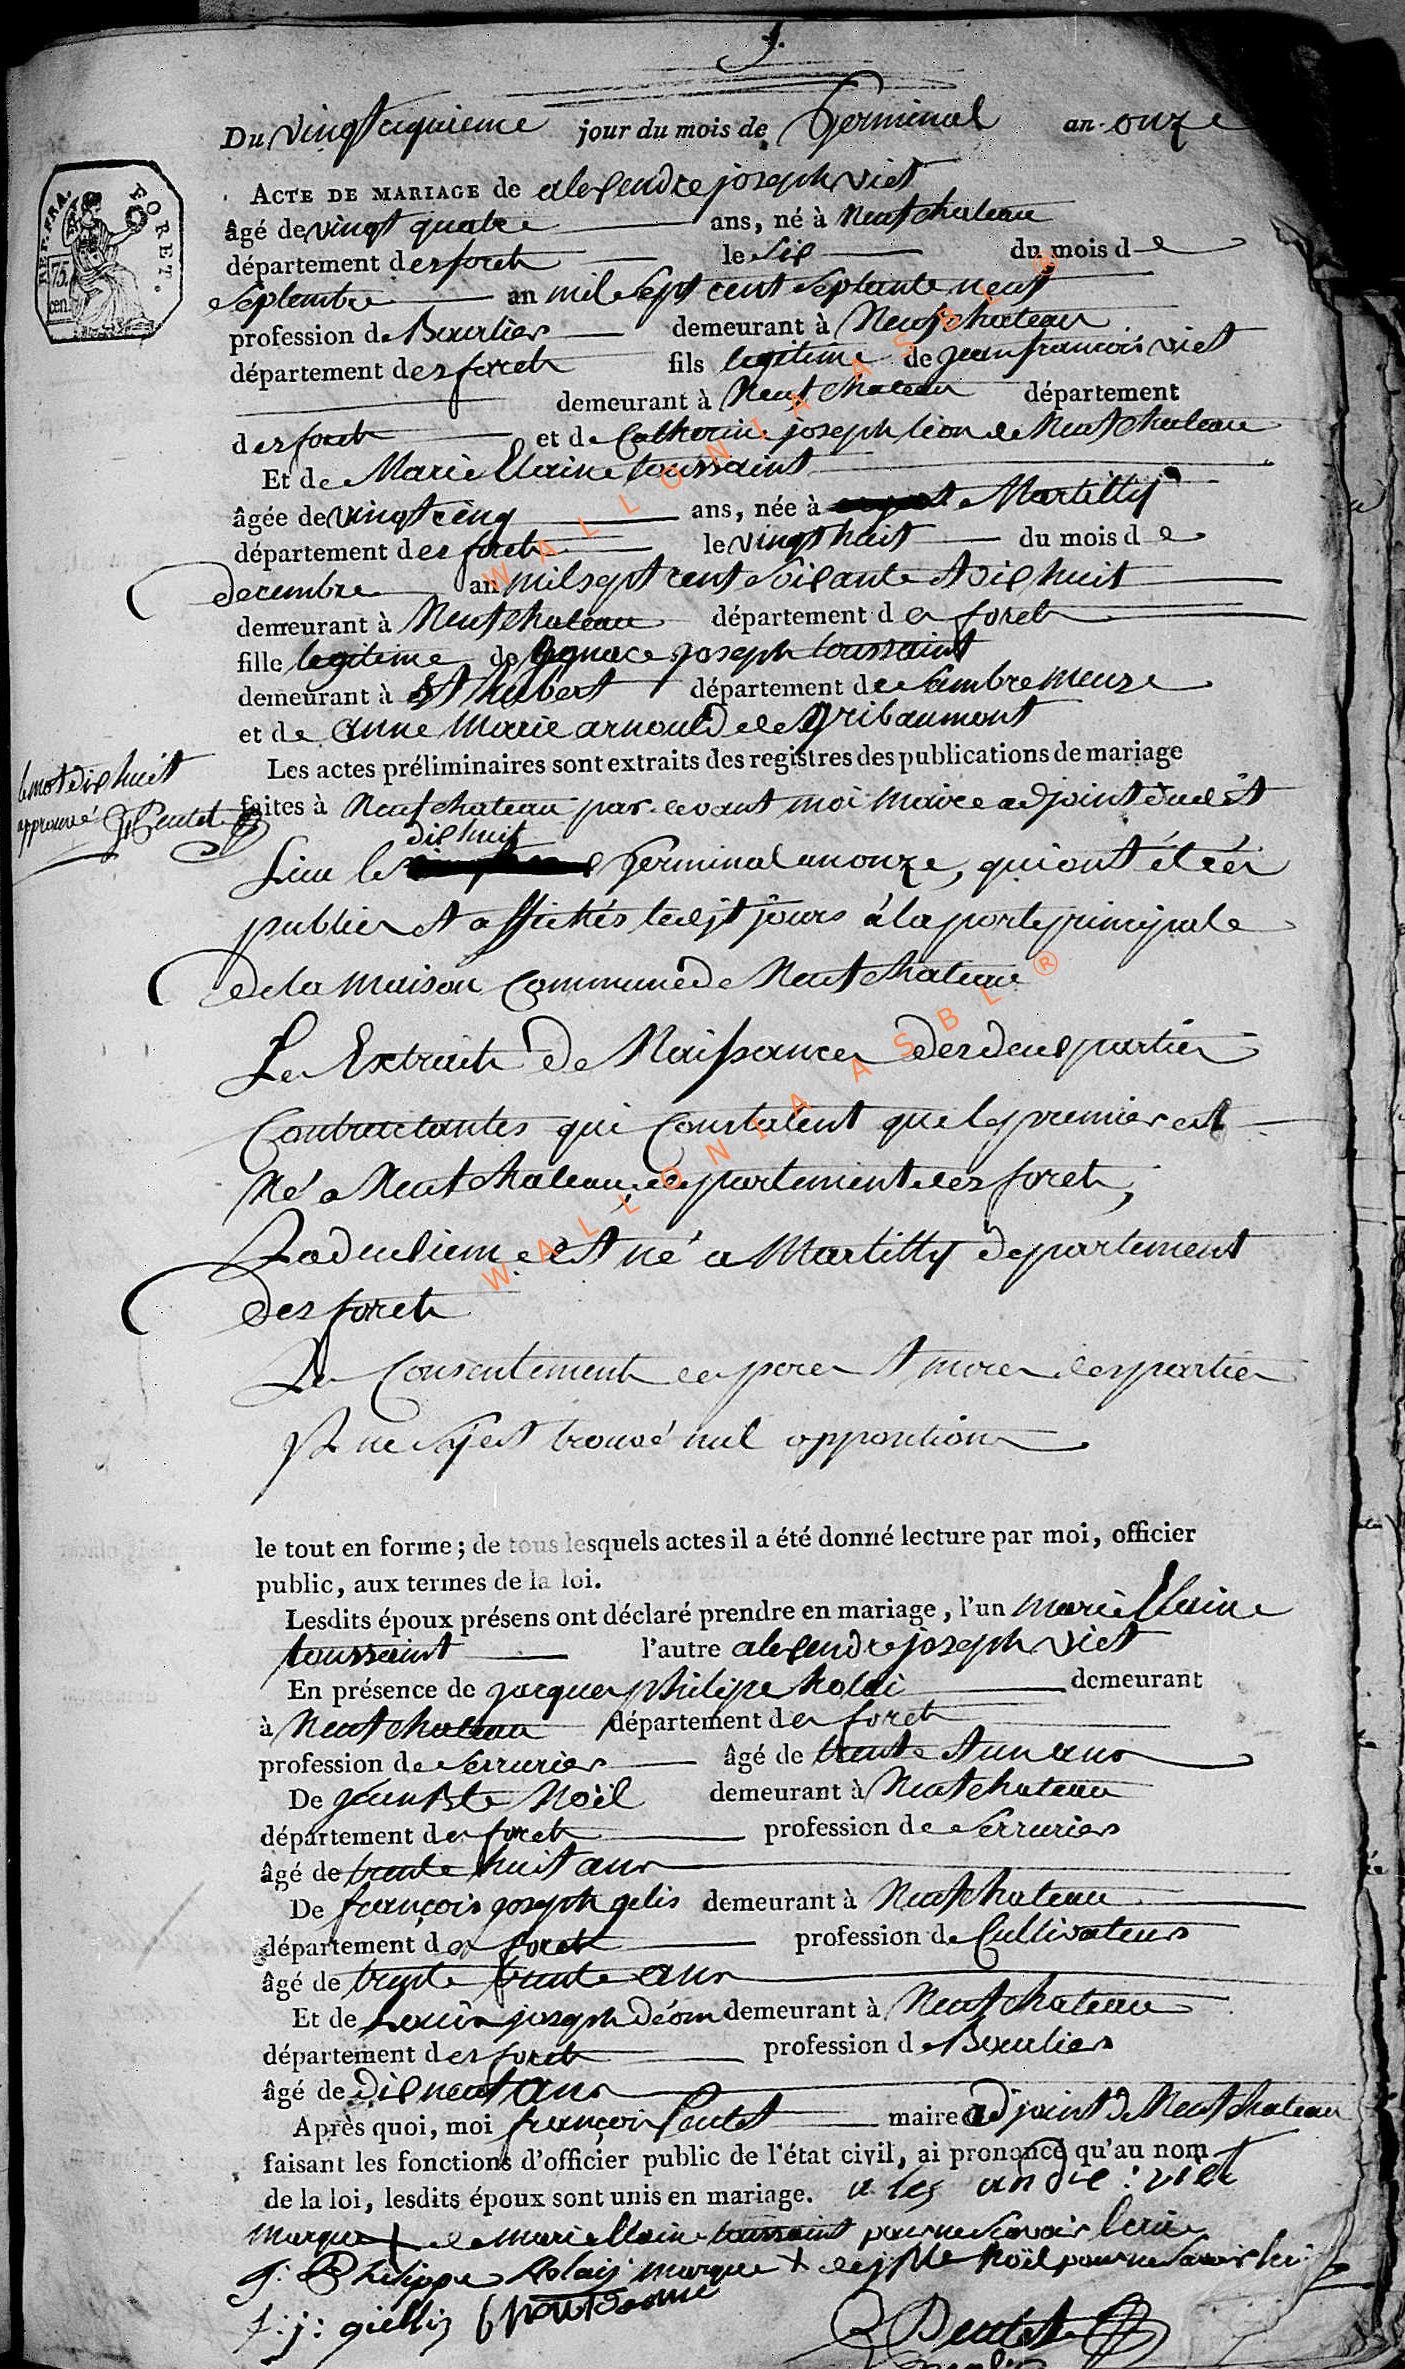 Du vingt ciquieme jour du mois de Germinal an onze
ACTE DE MARIAGE de alexendre joseph viet
âgé de vingt quatre ans, né à Neufchateau
département des foret le six du mois de
Septembre an mil Sept cent Septante neuf
profession de Bourlier demeurant à Neufchateau
département des foret fils legitime de jean francois viet
demeurant à Neufchateau département
des foret et de Catherine joseph lion de Neufchateau
Et de Marie Elaine toussaint
âgée de vingt cinq ans, née à Martilly
département des foret le vingt huit du mois de
decembre an mil sept cent soixante et dix huit
demeurant à Neufchateau département des foret
fille legitime de Ignace joseph toussaint
demeurant à St hubert département de Sambre meuse
et de anne Marie arnould de Gribaumont
Les actes préliminaires sont extraits des registres des publications de mariage
le mot dix huit
approuvé Pentet
faites à Neufchateau par devant moi maire adjoint dudit
dix huit
Lieu le Germinal an onze, qui ont étées
publies et affichés ledit jours à la porte principale
de la maison Commune de Neufchateau
Les Extraits de Naissances des deux parties
Contractantes qui Constatent que le premier est
Né a Neufchateau, departement des foret,
La deuxieme est né a Martilly departement
des foret
Le Consentement des peres et meres des parties
Il ne s'y est trouvé nul opposition
le tout en forme ; de tous lesquels actes il a été donné lecture par moi, officier
public, aux termes de la loi.
Lesdits époux présens ont déclaré prendre en mariage, l'un marie Elaine
toussaint l'autre alexendre joseph viet
En présence de jacques philipe holai demeurant
à Neufchateau département des foret
profession de Serrurier âgé de trente et un ans
De jean Bte Noël demeurant à Neufchateau
département des foret profession de Serrurier
âgé de trente huit ans
De françois joseph gelis demeurant à Neufchateau
département des foret profession de Cultivateur
âgé de trente ans
Et de Louis joseph déom demeurant à Neufchateau
département des foret profession de Bourlier
âgé de dix neuf ans
Après quoi, moi françois Pentet maire adjoint de Neufchateau
faisant les fonctions d'officier public de l'état civil, ai prononcé qu'au nom
de la loi, lesdits époux sont unis en mariage. alexandre : viet
marque + de marie Elaine toussaint pour ne Savoir Ecrire
j: Philippe holaij marque + de j Bte Noël pour ne Savoir
f: j: giellis
Pentet
REP. FRA. FORET.
75. cen.
WALLONIA ASBL ®
WALLONIA ASBL ®